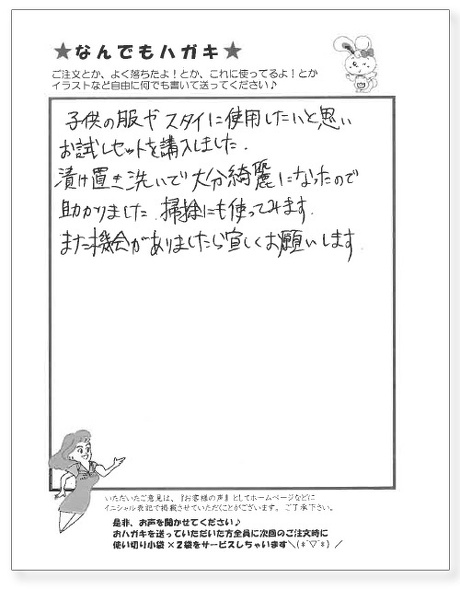 ★なんでもハガキ★
ご注文とか、よく落ちたよ！とか、これに使ってるよ！とか
イラストなど自由に何でも書いて送ってください♪
子供の服やスタイに使用したいと思い
お試しセットを購入しました.
漬け置き洗いで大分綺麗になったので
助かりました. 掃除にも使ってみます.
また機会がありましたら宜しくお願いします.
いただいたご意見は、『お客様の声』としてホームページなどに
イニシャル表記で掲載させていただくことがございます。ご了承下さい。
是非、お声を聞かせてください♪
おハガキを送っていただいた方全員に次回のご注文時に
使い切り小袋×２袋をサービスしちゃいます＼(*ﾟ▽ﾟ*)／